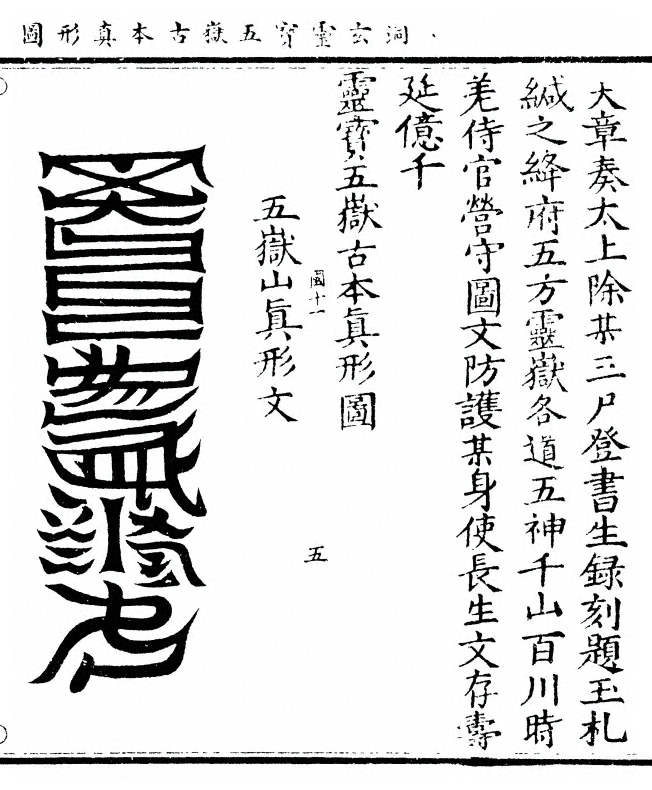 洞玄靈寶五嶽古本真形圖
大章奏太上除某三尸登書生録刻題玉札
緘之絳府五方靈嶽各道五神千山百川時
差侍官營守圖文防護某身使長生文存壽
延億千
靈寶五嶽古本真形圖
國十一
五
五嶽山真形文